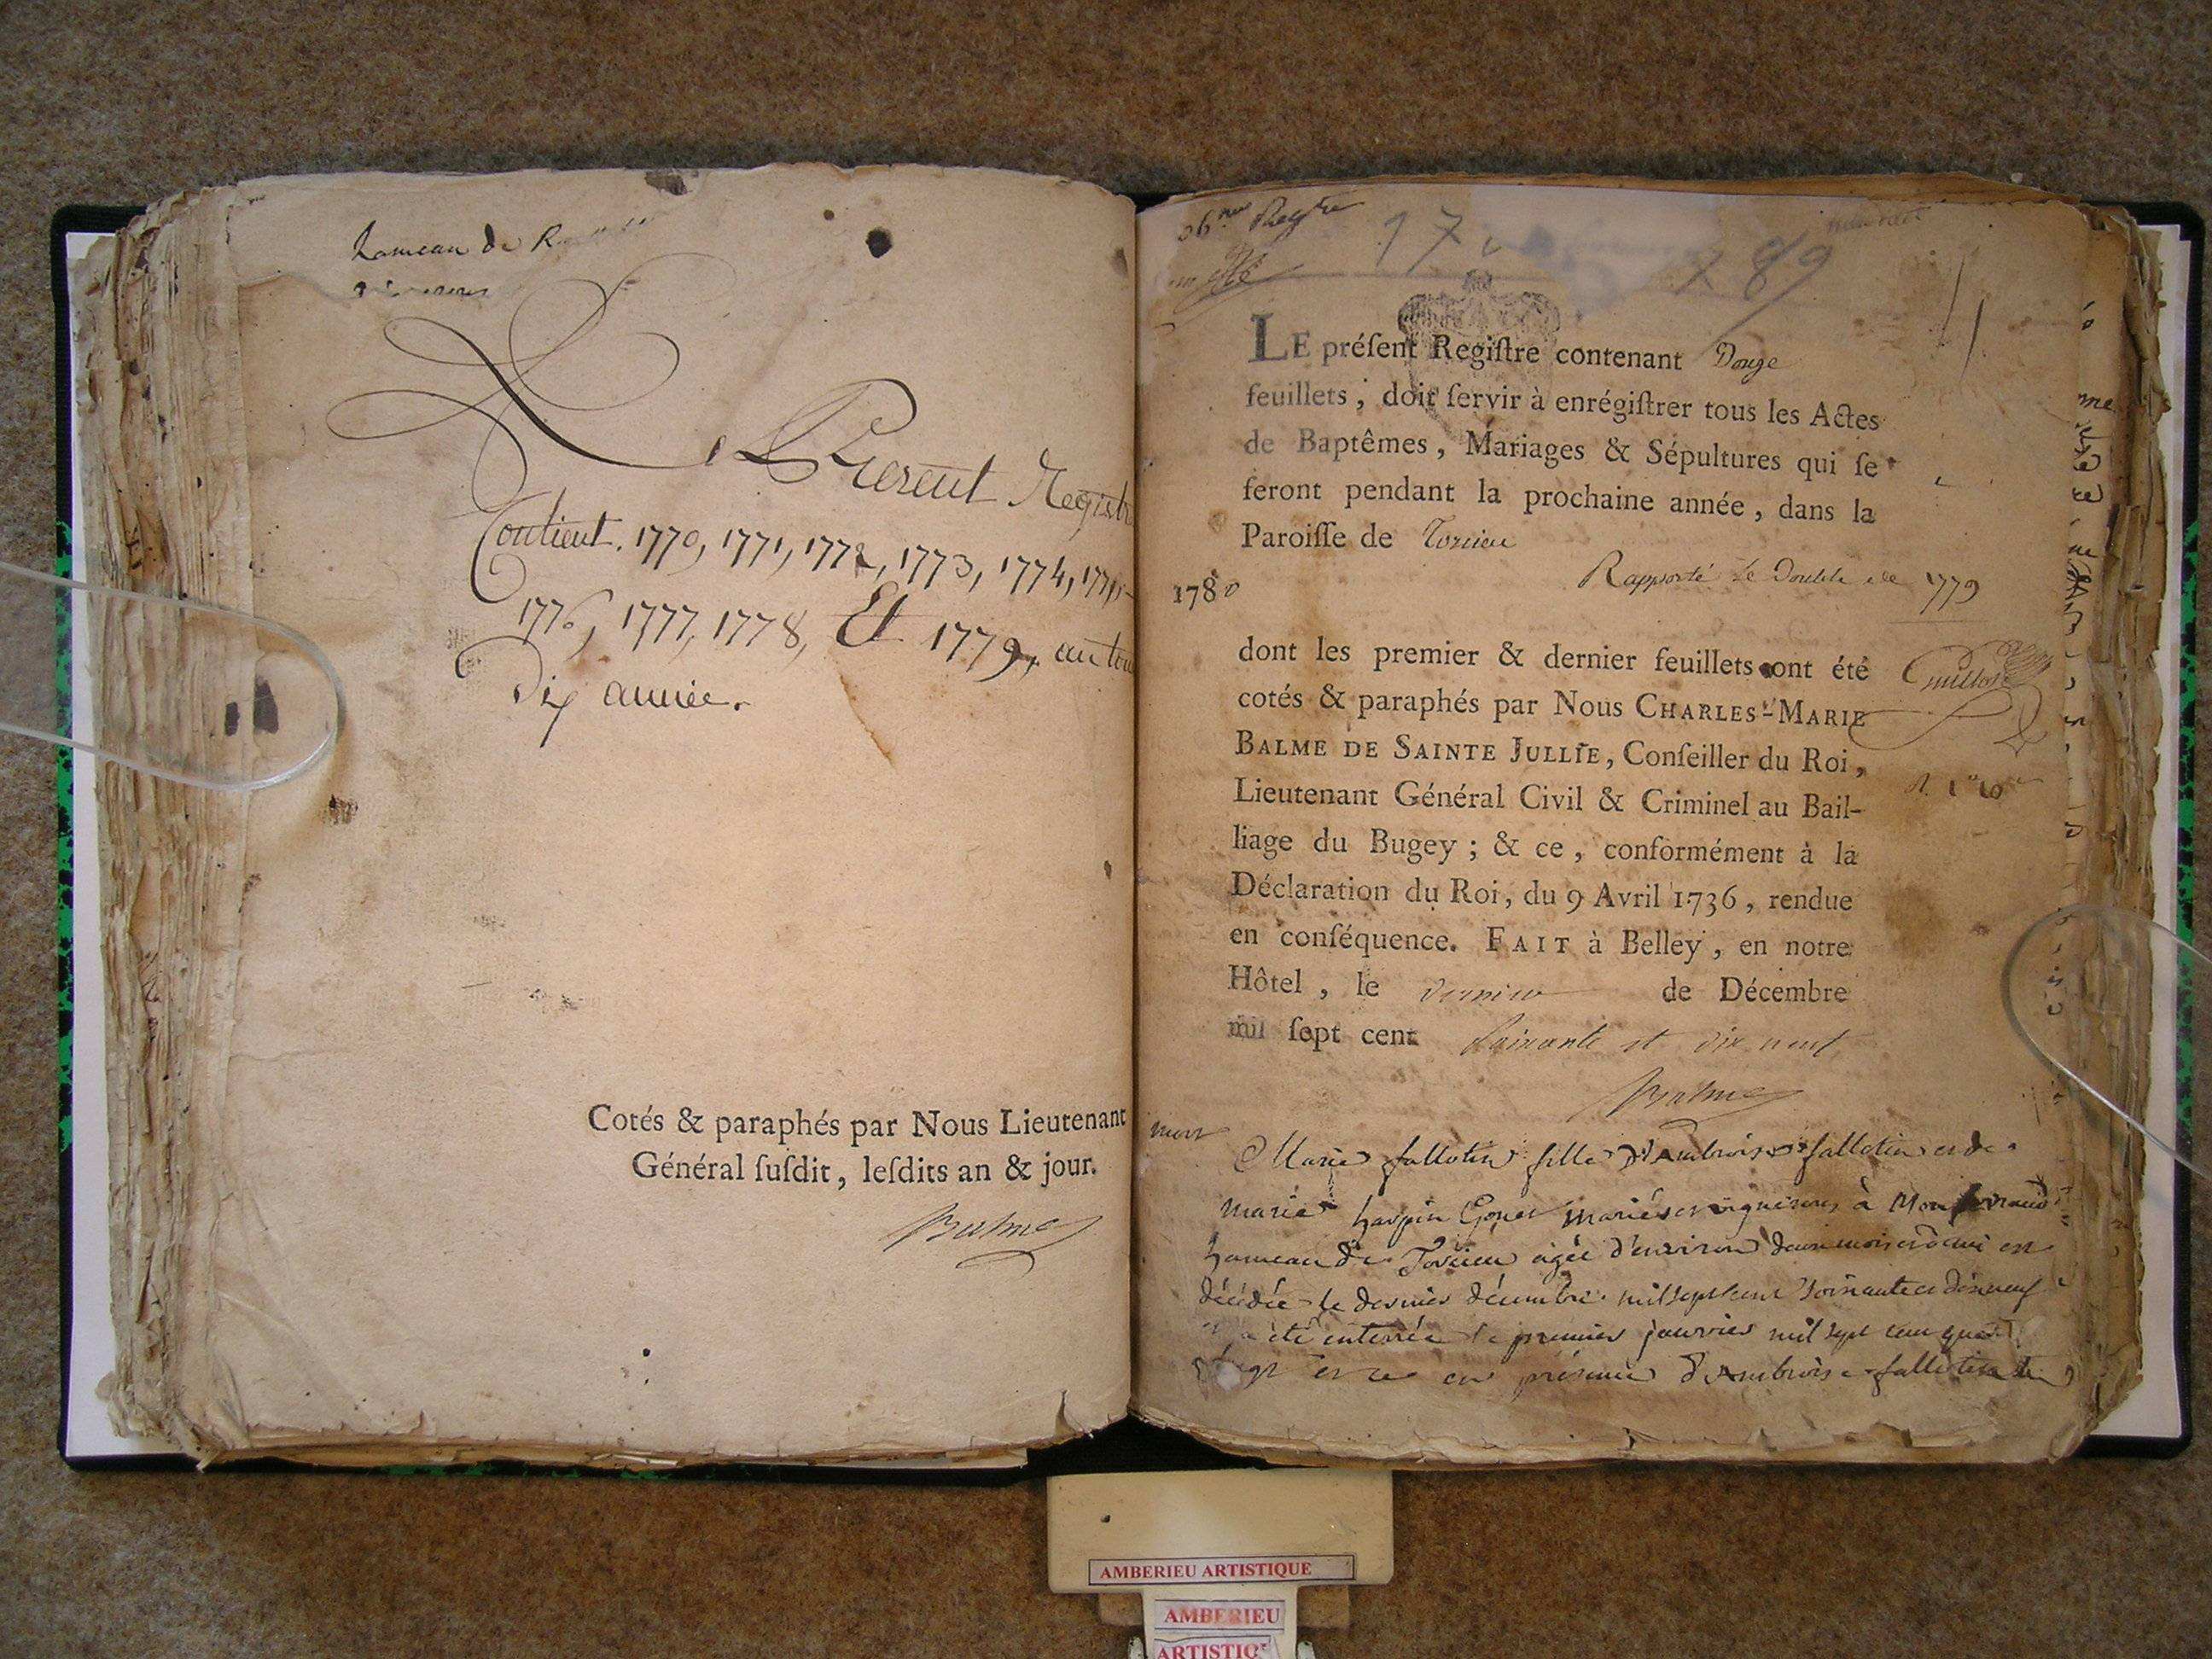 hameau de
Le Present Registre
Contient. 1770, 1771, 1772, 1773, 1774, 1775,
1776, 1777, 1778, Et 1779, en tout
Dix année.
Cotés & paraphés par Nous Lieutenant
Général ſuſdit, leſdits an & jour.
Balme
17 89
LE préſent Regiſtre contenant Douze
feuillets ; doit ſervir à enrégiſtrer tous les Actes
de Baptêmes, Mariages & Sépultures qui ſe
feront pendant la prochaine année, dans la
Paroiſſe de Torcieu
Rapporté Le Double de 1779
1780
dont les premier & dernier feuillets ont été
cotés & paraphés par Nous CHARLES-MARIE
BALME DE SAINTE JULLIE, Conſeiller du Roi,
Lieutenant Général Civil & Criminel au Bail-
liage du Bugey ; & ce, conformément à la
Déclaration du Roi, du 9 Avril 1736, rendue
en conſéquence. FAIT à Belley, en notre
Hôtel, le dernier de Décembre
mil ſept cent soixante et dix neuf
Balme
mort
Marie fallotin fille d'Ambroise fallotin et de
marie mariés et vignerons à
hameau de Torcieu agée d'environ deux mois et demi est
décédée le dernier décembre mil sept cent soixante et dix neuf
a été enterrée le premier janvier mil sept cent quatre
vingt en présence d'Ambroise fallotin
AMBERIEU ARTISTIQUE
AMBERIEU
ARTISTIQUE